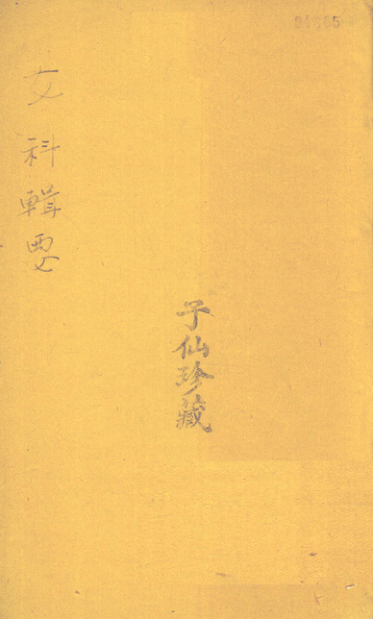 女科輯要
子仙珍藏